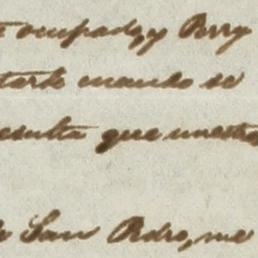 ocupado, y Perry
tarde cuando se
resulta que nuestro
San Pedro, me